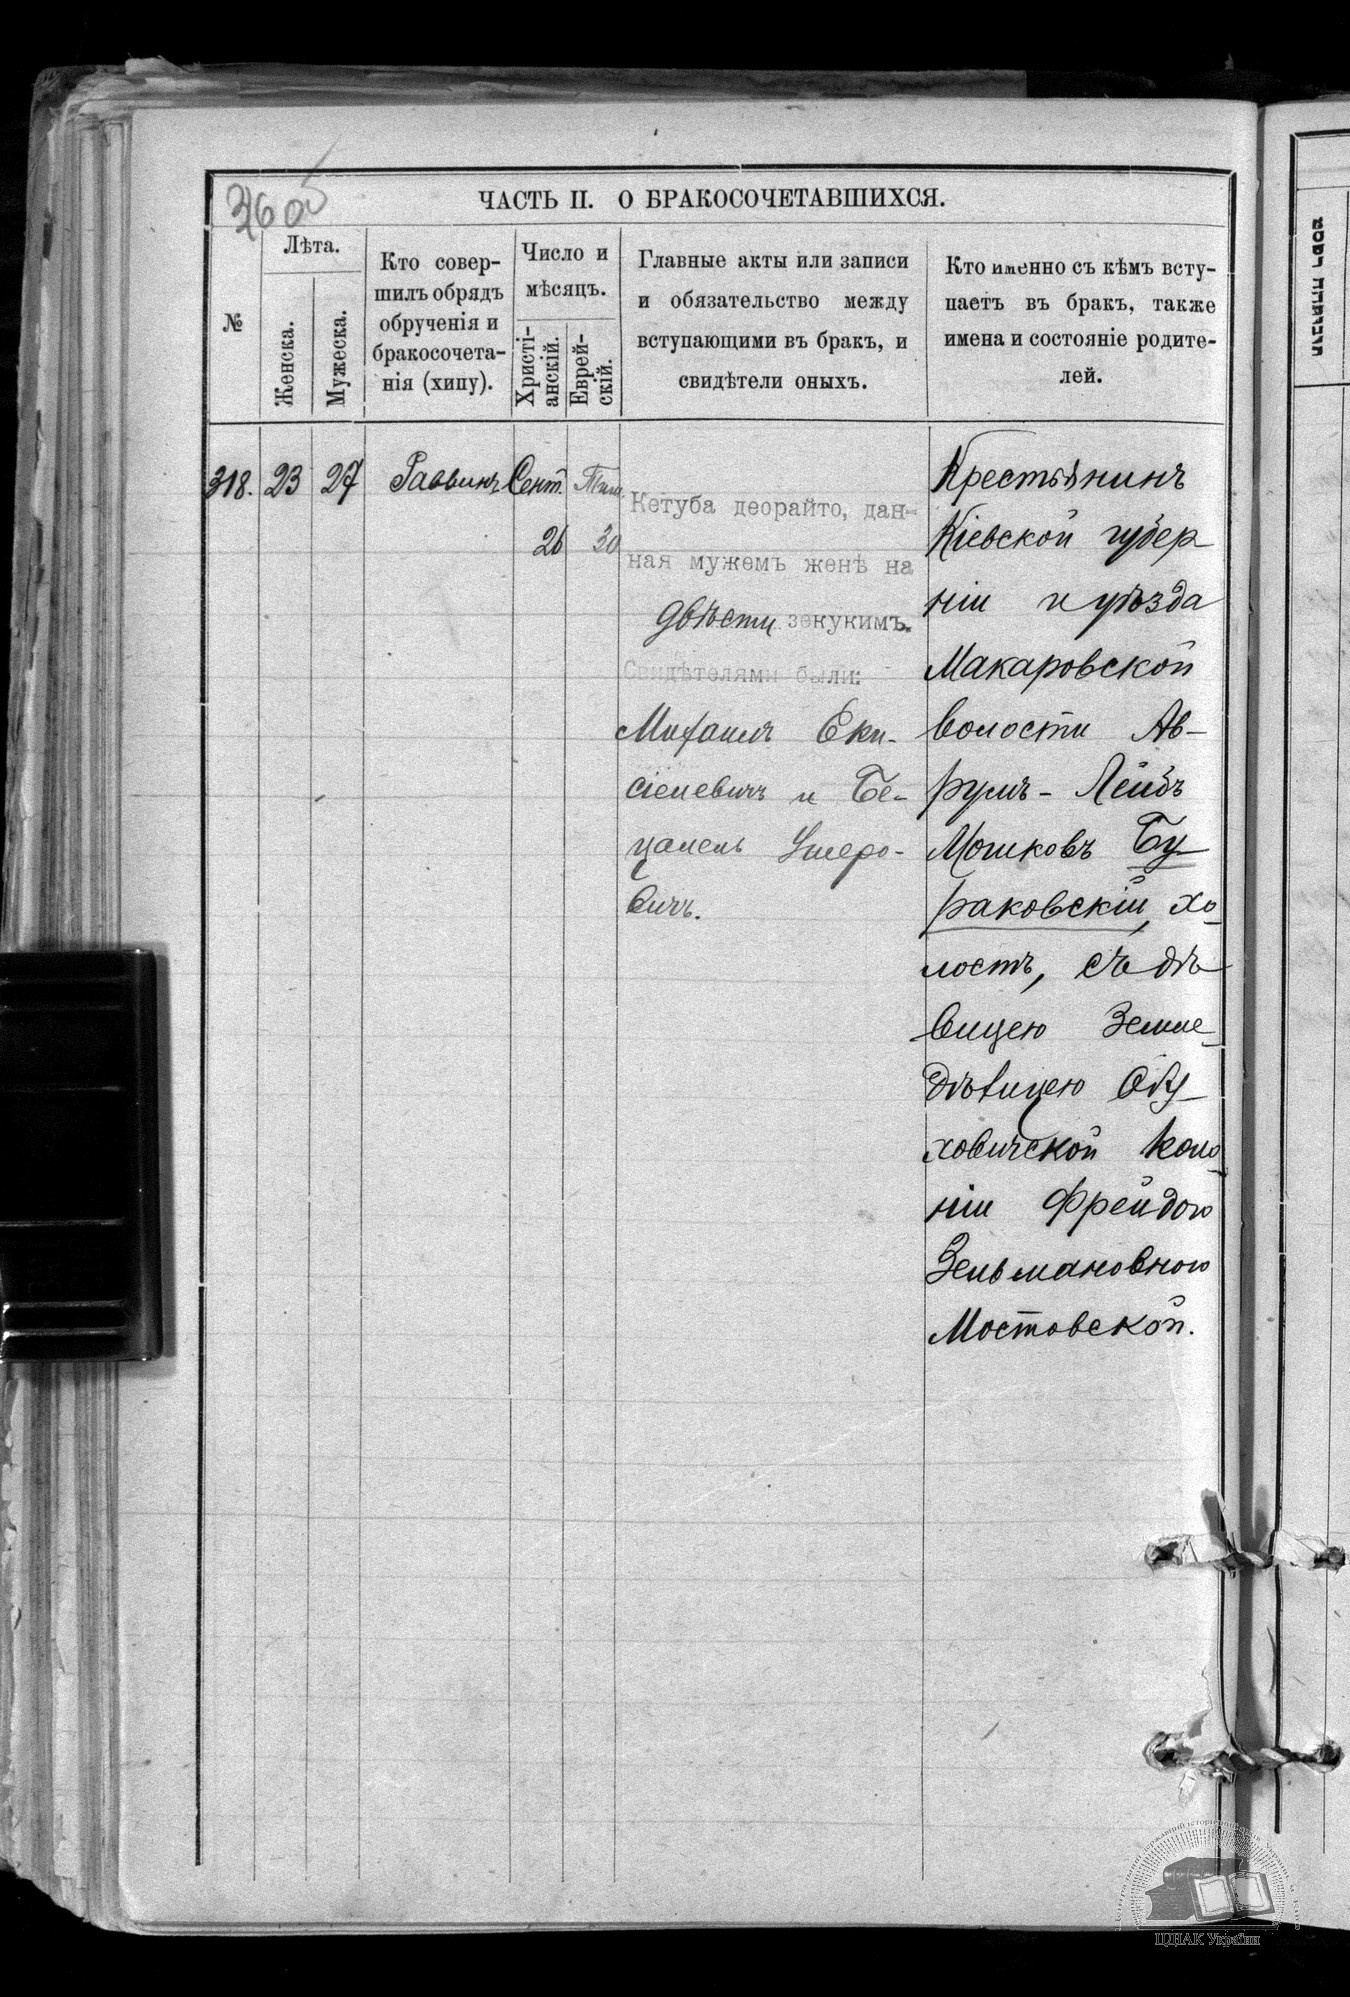 ЧАСТЬ II. О БРАКОСОЧЕТАВШИХСЯ.
№
Лѣта.
Женска.
Мужеска.
Кто совер-
шилъ обрядъ
обрученія и
бракосочета-
нія (хипу).
Число и
мѣсяцъ.
Христі-
анскій.
Еврей-
скій.
Главные акты или записи
и обязательство между
вступающими въ бракъ, и
свидѣтели оныхъ.
Кто именно съ кѣмъ всту-
паетъ въ бракъ, также
имена и состояніе родите-
лей.
318. 23 27 Раввинъ Сент.
26 30
Кетуба деорайто, дан-
ная мужемъ женѣ на
двѣсти зекукимъ.
Свидѣтелями были:
Михаилъ Еки-
сіелевичъ и Бе-
цалель Ушеро-
вичъ.
Крестьянинъ
Кіевской губер
ніи и уѣзда
Макаровской
волости Ав-
румъ-Лейбъ
Мошковъ Бу-
раковскій, хо-
лостъ, съ дѣ
вицею Земле-
дѣлицею Обу-
ховичской коло-
ніи Фрейдою
Зельмановною
Мостовской.
ЦДІАК України